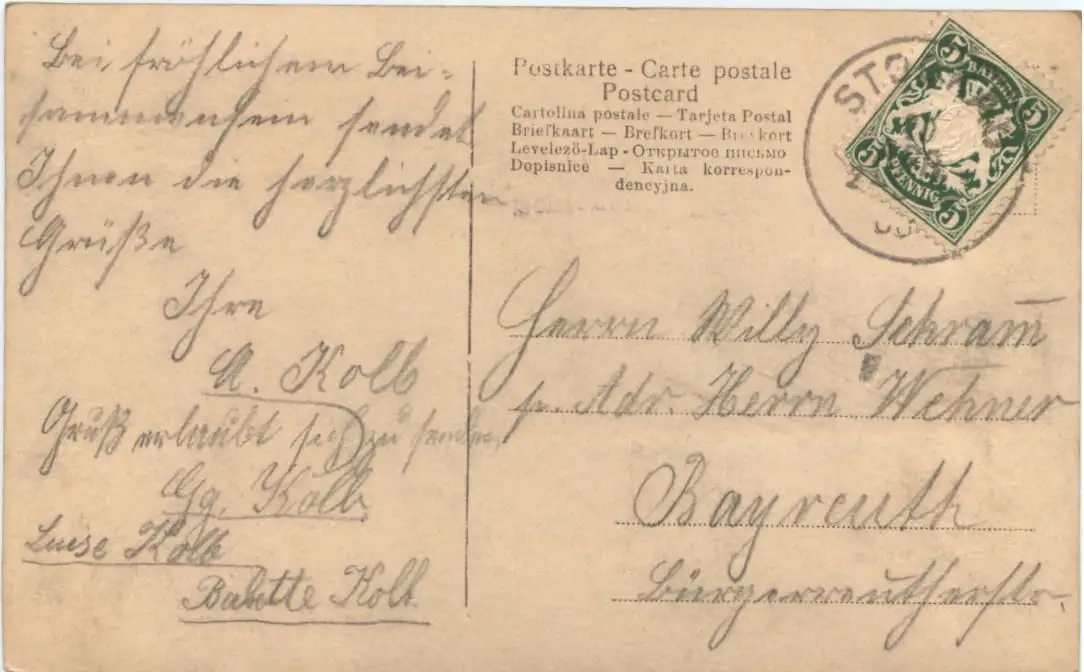 Bei fröhlichem Bei-
sammensein sendet
Ihnen die herzlichsten
Grüße
Ihre
A. Kolb
Gruß erlaubt sich zu senden
Gg. Kolb
Luise Kolb
Babette Kolb
Postkarte - Carte postale
Postcard
Cartolina postale — Tarjeta Postal
Briefkaart — Brefkort — Brevkort
Levelező-Lap - Открытое письмо
Dopisnice — Karta korrespon-
dencyjna.
5 BAYERN 5
5 PFENNIG 5
Herrn Willy Schram̄
p. Adr. Herrn Wehner
Bayreuth
Bürgerreutherstr.